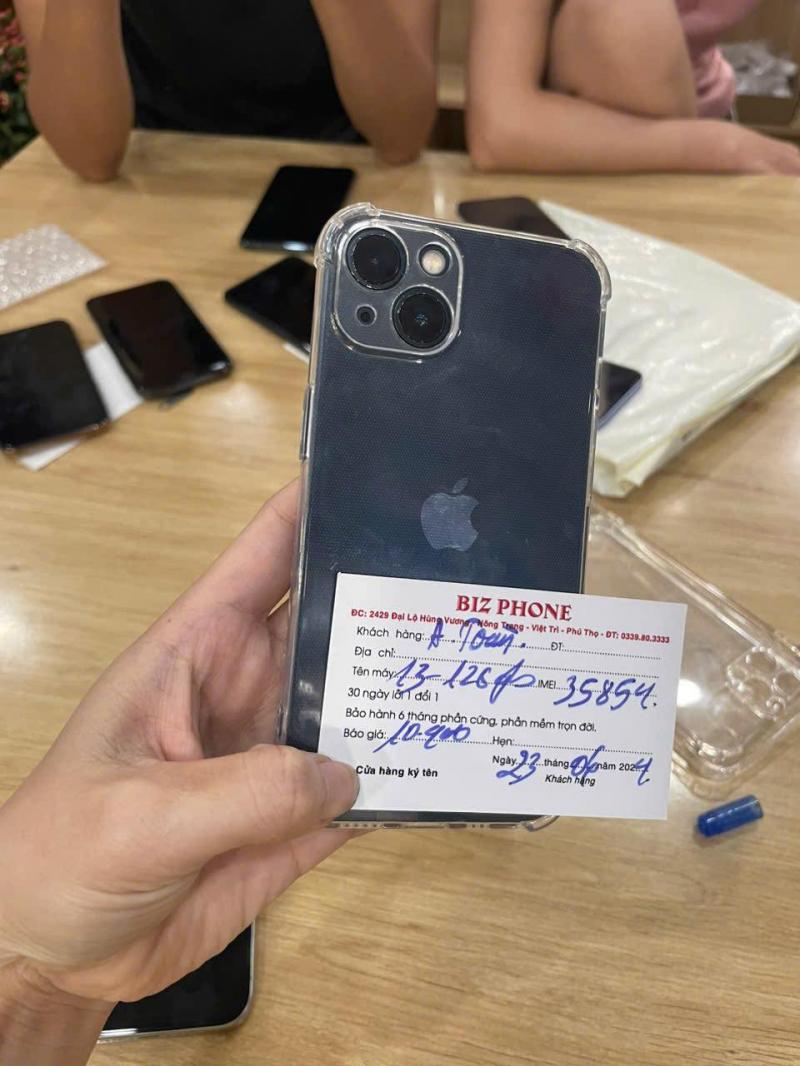 BIZ PHONE
ĐC: 2429 Đại Lộ Hùng Vương, Nông Trang - Việt Trì - Phú Thọ - ĐT: 0339.80.3333
Khách hàng: A. Toàn. ĐT:
Địa chỉ:
Tên máy: 13-128gb IMEI 35854.
30 ngày lỗi 1 đổi 1
Bảo hành 6 tháng phần cứng, phần mềm trọn đời.
Báo giá: Hẹn:
Ngày 23 tháng 06 năm 2024
Cửa hàng ký tên Khách hàng